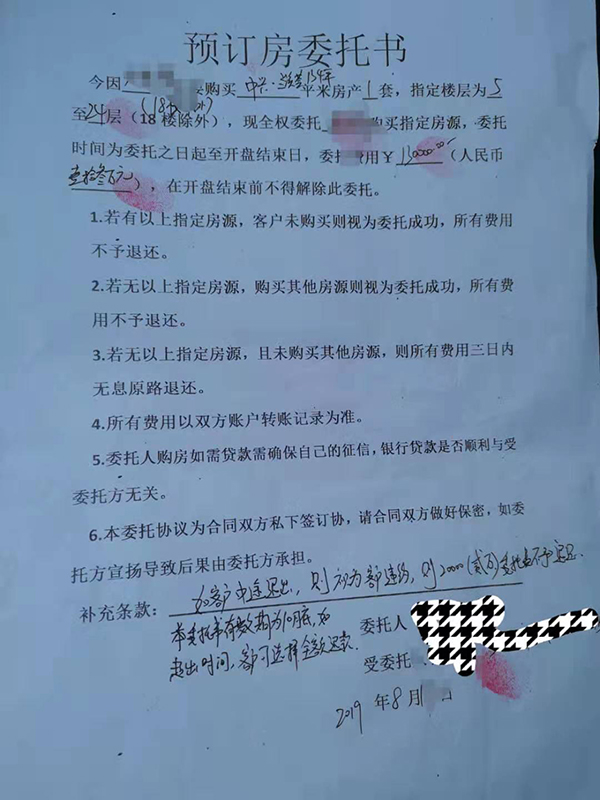 预订房委托书
今因 购买 平米房产1套，指定楼层为5
至24层（18楼除外），现全权委托 购买指定房源，委托
时间为委托之日起至开盘结束日，委托费用￥130000.00（人民币
壹拾叁万元），在开盘结束前不得解除此委托。
1.若有以上指定房源，客户未购买则视为委托成功，所有费用
不予退还。
2.若无以上指定房源，购买其他房源则视为委托成功，所有费
用不予退还。
3.若无以上指定房源，且未购买其他房源，则所有费用三日内
无息原路退还。
4.所有费用以双方账户转账记录为准。
5.委托人购房如需贷款需确保自己的征信，银行贷款是否顺利与受
委托方无关。
6.本委托协议为合同双方私下签订协，请合同双方做好保密，如委
托方宣扬导致后果由委托方承担。
补充条款：如客户中途退出，则视为客户违约，则20000（贰万）委托金不予退还
本委托书有效期为10月底，如
超出时间，客户可选择全额退款.
委托人
受委托
2019年8月1 日